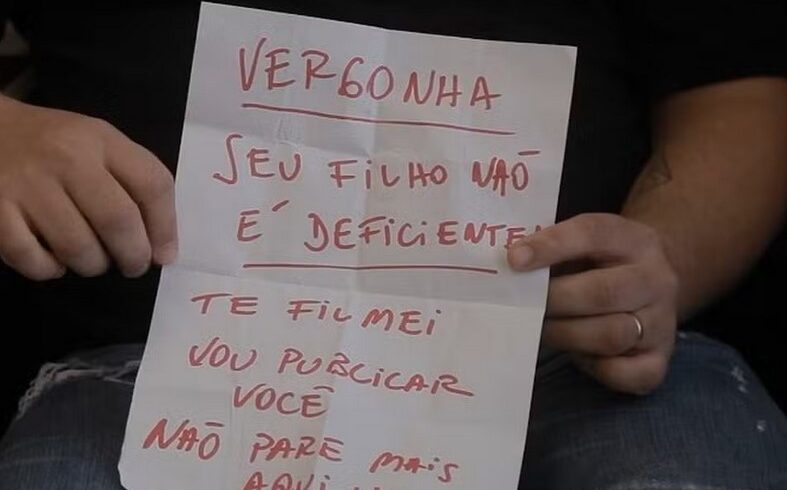 VERGONHA
SEU FILHO NÃO
É DEFICIENTE!
TE FILMEI
VOU PUBLICAR
VOCÊ
NÃO PARE MAIS
AQUI